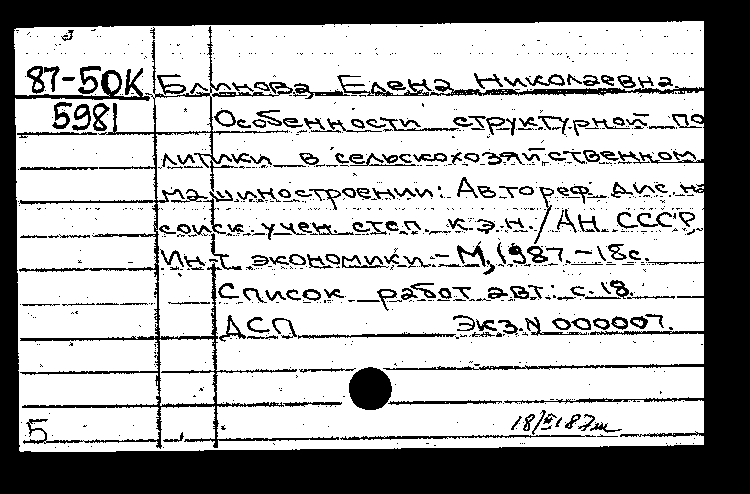 87-50К Блинова, Елена Николаевна
5981 Особенности структурной по
литики в сельскохозяйственном
машиностроении: Автореф. дис. на
соиск. учен. степ. к.э.н. / АН СССР
Ин-т экономики. - М, 1987. - 18с.
Список работ авт.: с. 18.
ДСП Экз. N 000007.
Б